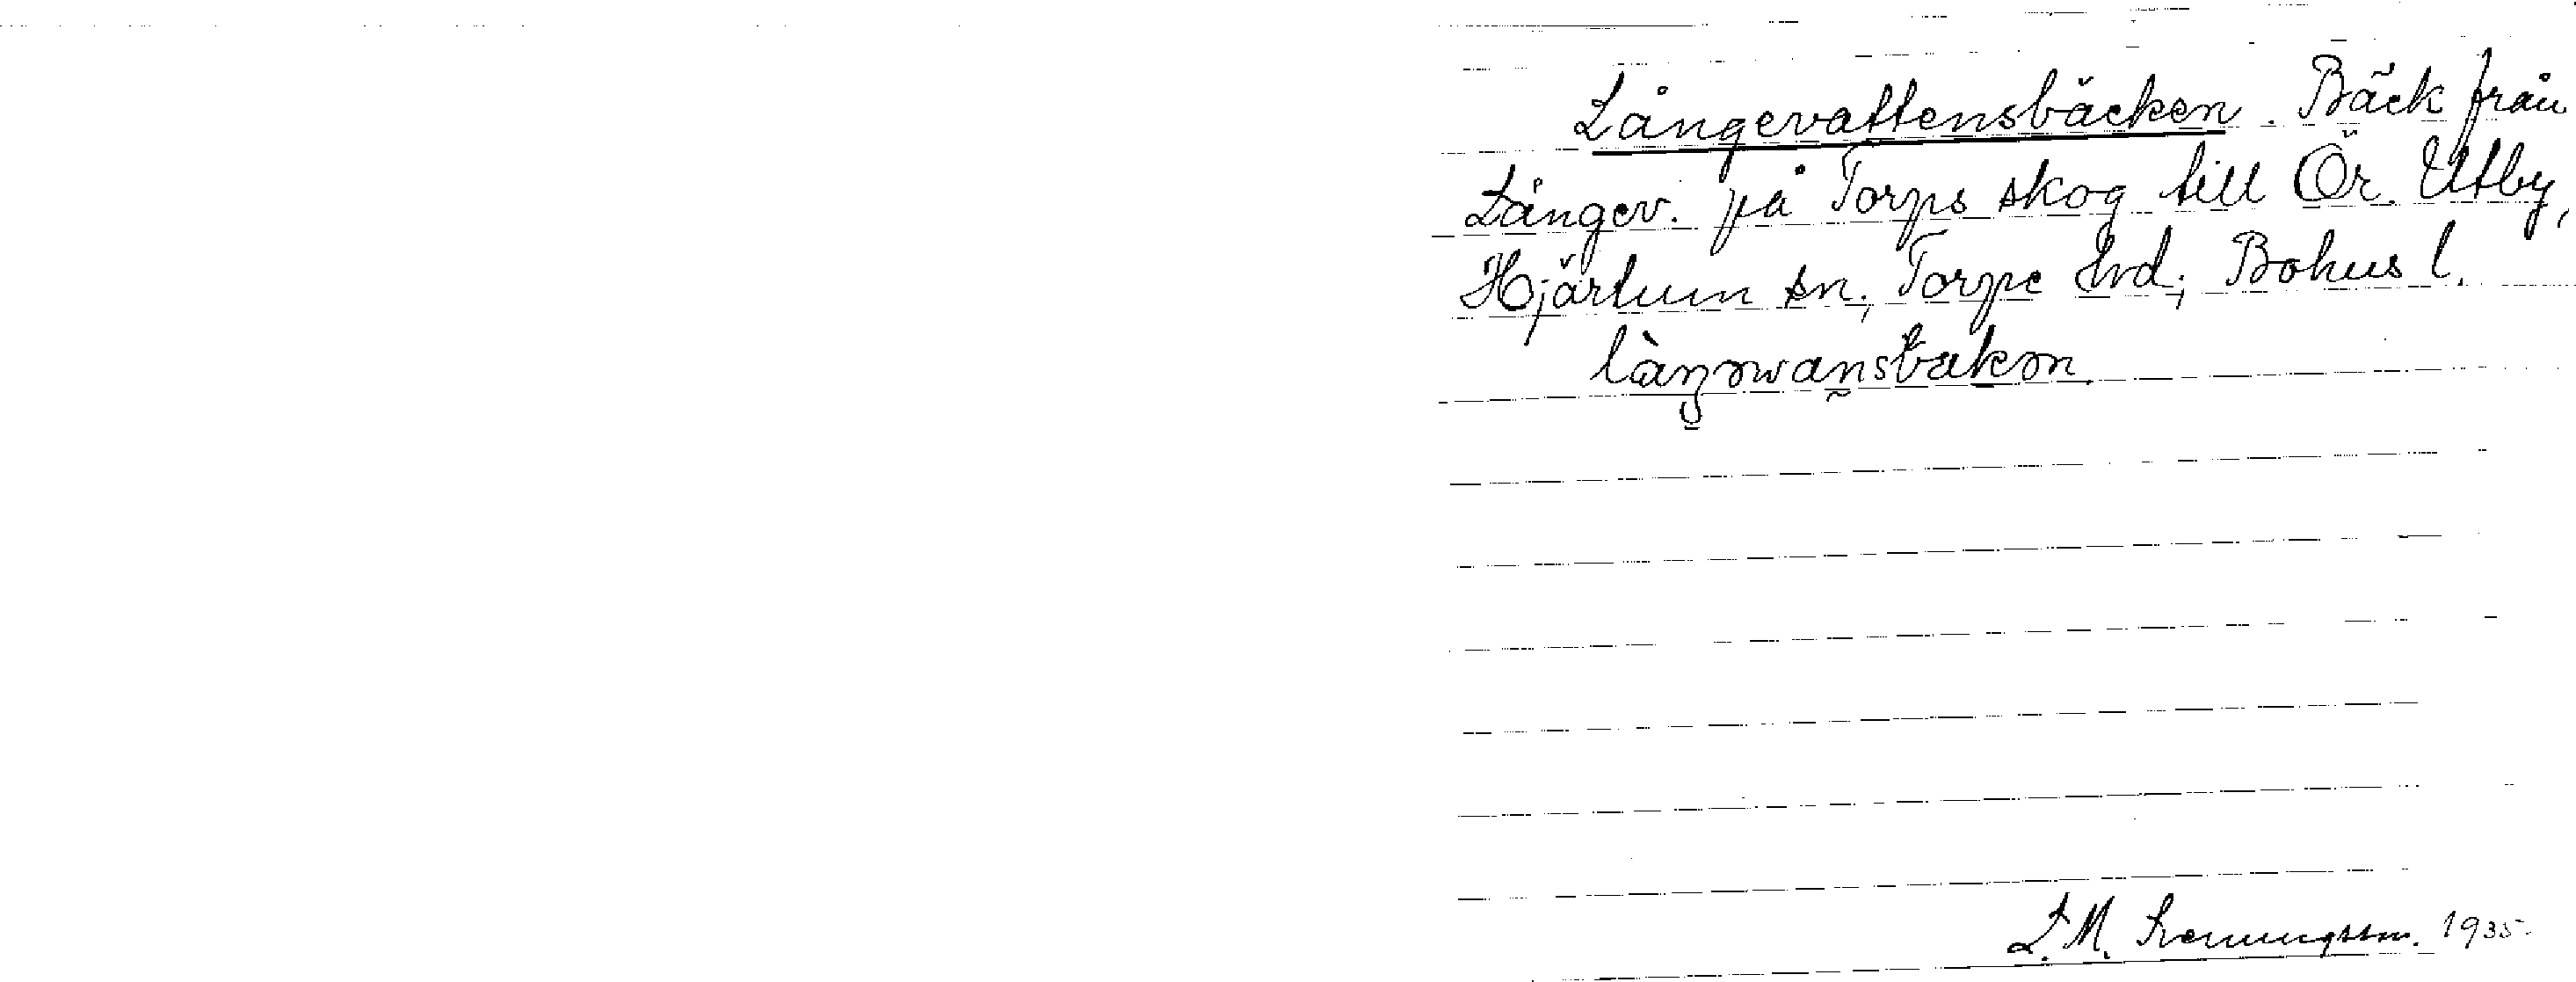 Långevattensbäcken. Bäck från
Långev. på Torps skog till Ör. Utby,
Hjärtum sn, Torpe hd; Bohus l.
L. M. 1935.